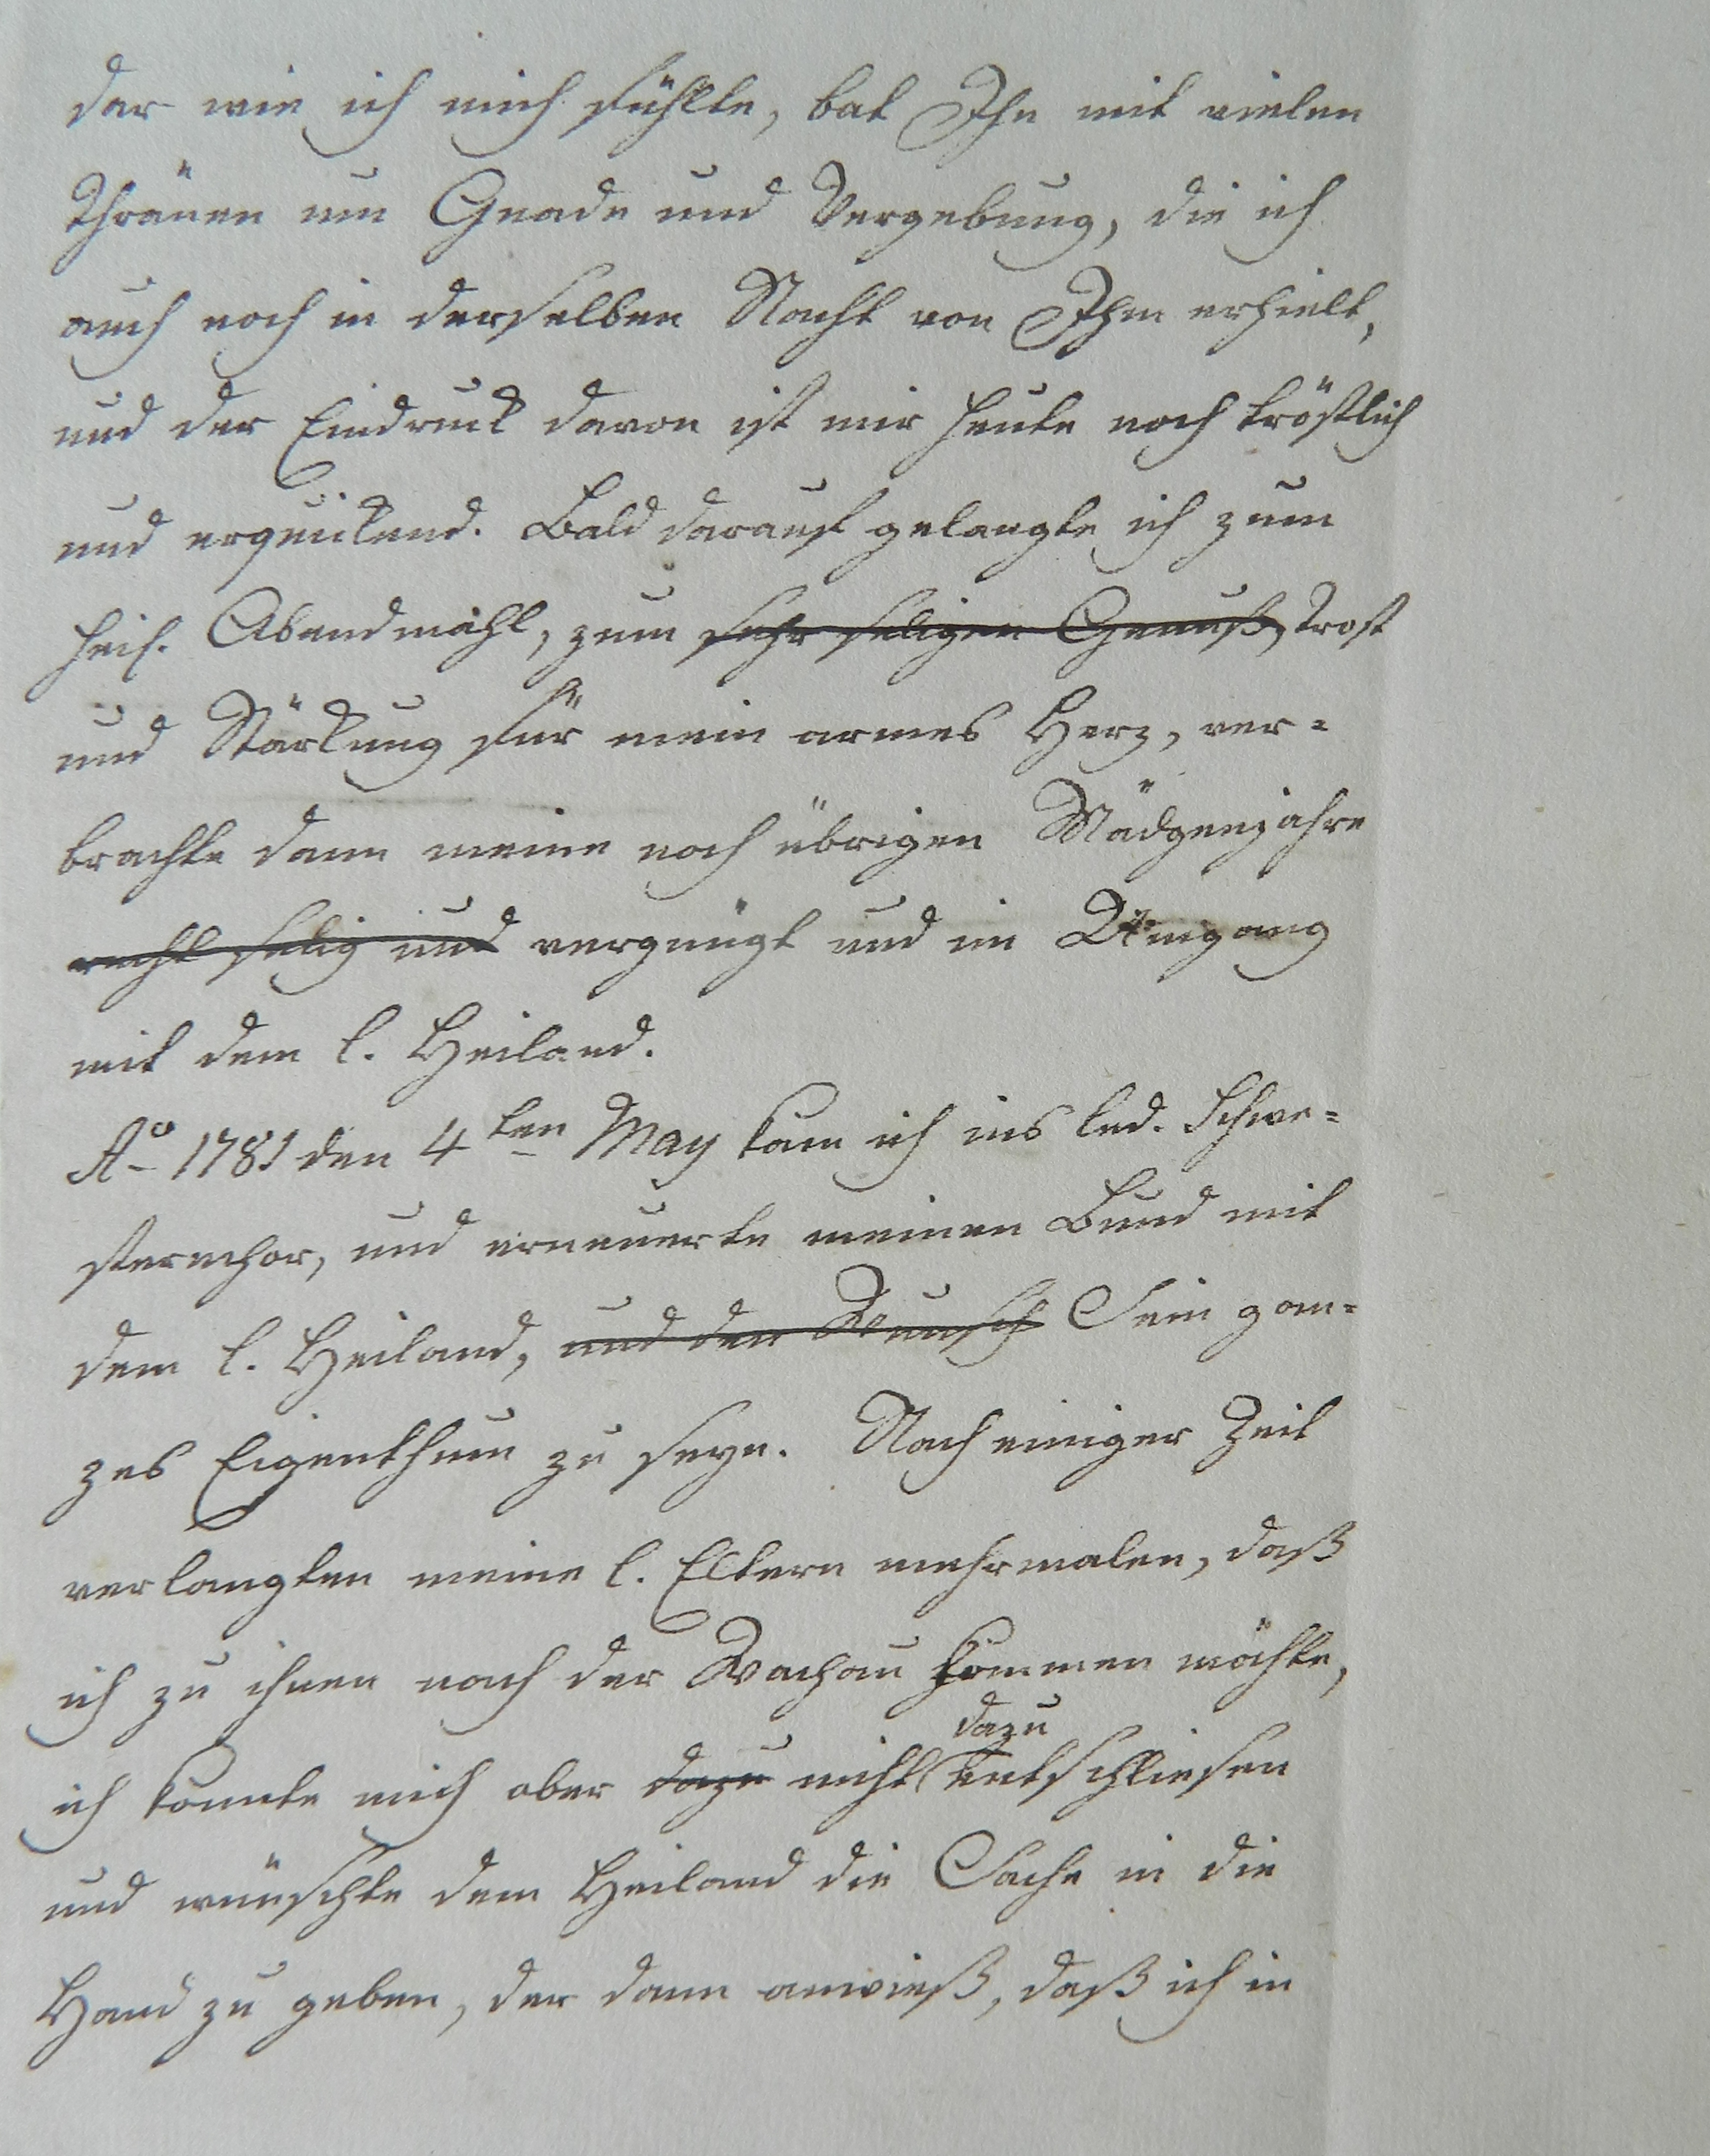 dar wie ich mich fühlte, bat Ihn mit vielen
Thränen um Gnade und Vergebung, die ich
auch noch in derselben Nacht von Ihm erhielt,
und der Eindruck davon ist mir heute noch tröstlich
und erquickend. Bald darauf gelangte ich zum
heil. Abendmahl, zum sehr seligen Genuß, Trost
und Stärkung für mein armes Herz, ver=
brachte dann meine noch übrigen Mädgenjahre
recht selig und vergnügt und im Umgang
mit dem l. Heiland.
Ao 1781 den 4ten May kam ich ins led. Schwe=
sternchor, und erneuerte meinen Bund mit
dem l. Heiland, und den Wunsch Sein gan=
zes Eigenthum zu seyn. Nach einiger Zeit
verlangten meine l. Eltern mehrmalen, daß
ich zu ihnen nach der Wachau kommen möchte,
dazu
ich konnte mich aber dazu nicht entschliesen
und wünschte dem Heiland die Sache in die
Hand zu geben, der dann anwieß, daß ich in